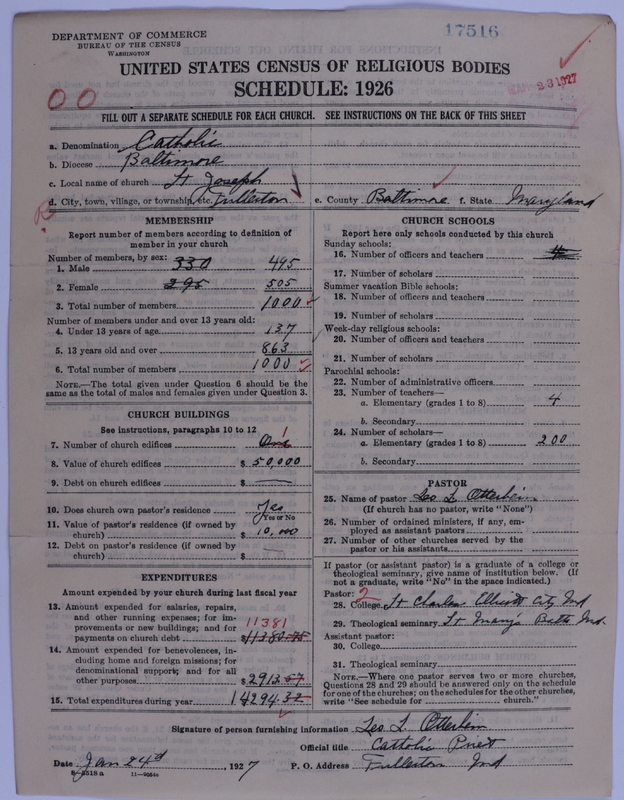 DEPARTMENT OF COMMERCE
BUREAU OF THE CENSUS
WASHINGTON
17516
UNITED STATES CENSUS OF RELIGIOUS BODIES
SCHEDULE: 1926
23 1927
00
FILL OUT A SEPARATE SCHEDULE FOR EACH CHURCH. SEE INSTRUCTIONS ON THE BACK OF THIS SHEET
a. Denomination Catholic
b. Diocese Baltimore
c. Local name of church St Joseph
d. City, town, village, or township, etc. Fullerton e. County Baltimore f. State Maryland
MEMBERSHIP
Report number of members according to definition of
member in your church
Number of members, by sex:
1. Male 330 495
2. Female 295 505
3. Total number of members 1000
Number of members under and over 13 years old:
4. Under 13 years of age 137
5. 13 years old and over 863
6. Total number of members 1000
NOTE.—The total given under Question 6 should be the
same as the total of males and females given under Question 3.
CHURCH BUILDINGS
See instructions, paragraphs 10 to 12
7. Number of church edifices One 1
8. Value of church edifices $ 50,000
9. Debt on church edifices $
10. Does church own pastor's residence Yes
Yes or No
11. Value of pastor's residence (if owned by
church) $ 10,000
12. Debt on pastor's residence (if owned by
church) $
EXPENDITURES
Amount expended by your church during last fiscal year
13. Amount expended for salaries, repairs,
and other running expenses; for im-
provements or new buildings; and for 11381
payments on church debt $11380.75
14. Amount expended for benevolences, in-
cluding home and foreign missions; for
denominational support; and for all
other purposes $2913.57
15. Total expenditures during year 14294.32
CHURCH SCHOOLS
Report here only schools conducted by this church
Sunday schools:
16. Number of officers and teachers
17. Number of scholars
Summer vacation Bible schools:
18. Number of officers and teachers
19. Number of scholars
Week-day religious schools:
20. Number of officers and teachers
21. Number of scholars
Parochial schools:
22. Number of administrative officers
23. Number of teachers—
a. Elementary (grades 1 to 8) 4
b. Secondary
24. Number of scholars—
a. Elementary (grades 1 to 8) 200
b. Secondary
PASTOR
25. Name of pastor Leo L Otterbein
(If church has no pastor, write "None")
26. Number of ordained ministers, if any, em-
ployed as assistant pastors
27. Number of other churches served by the
pastor or his assistants
If pastor (or assistant pastor) is a graduate of a college or
theological seminary, give name of institution below. (If
not a graduate, write "No" in the space indicated.)
Pastor: 2
28. College St Charles Ellicott City Md
29. Theological seminary St Marys Balto Md.
Assistant pastor:
30. College
31. Theological seminary
NOTE.—Where one pastor serves two or more churches,
Questions 28 and 29 should be answered only on the schedule
for one of the churches; on the schedules for the other churches,
write "See schedule for church."
Signature of person furnishing information Leo L Otterbein
Official title Catholic Priest
Date Jan 24th, 1927 P. O. Address Fullerton Md